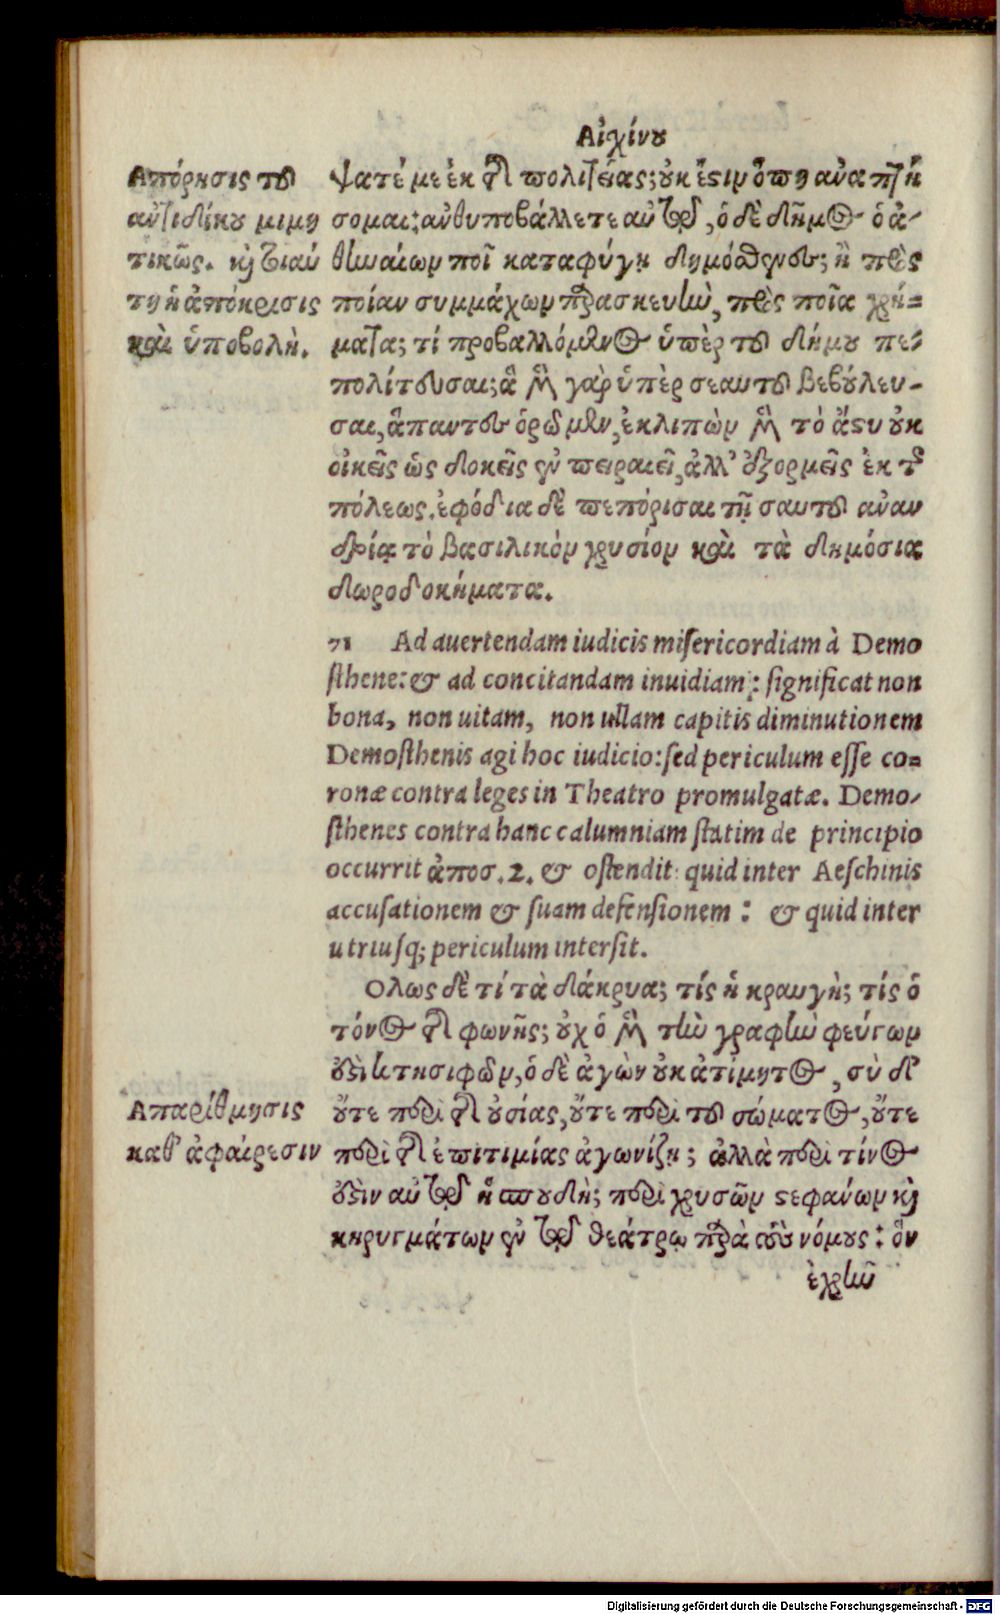 Αἰχίνου
Απόρησις τοῦ
ἀντιδίκου μιμη
τικῶς. καὶ ταύ
τη ἡ ἀπόκρισις
καὶ ὑποβολὴ.
ψατέ με ἐκ τῆς πολιτείας; οὐκ ἔστιν ὅπη ἀναπτή
σομαι: ἀνθυποβάλλετε αὐτῷ, ὁ δὲ δῆμος ὁ ἀ-
θηναίων ποῖ καταφύγῃ δημόσθενες; ἢ πρὸς
ποίαν συμμάχων παρασκευὴν, πρὸς ποῖα χρή=
ματα; τί προβαλλόμενος ὑπὲρ τοῦ δήμου πε-
πολίτευσαι; ἃ μὲν γὰρ ὑπὲρ σεαυτοῦ βεβούλευ-
σαι, ἅπαντες ὁρῶμεν, ἐκλιπὼν μὲν τὸ ἄστυ οὐκ
οἰκεῖς ὡς δοκεῖς ἐν πειραιεῖ, ἀλλ' ἐξορμεῖς ἐκ τῆς
πόλεως. ἐφόδια δὲ πεπόρισαι τῇ σαυτοῦ ἀναν
δρίᾳ τὸ βασιλικὸν χρυσίον καὶ τὰ δημόσια
δωροδοκήματα.
71 Ad auertendam iudicis misericordiam à Demo
sthene: & ad concitandam inuidiam: significat non
bona, non uitam, non ullam capitis diminutionem
Demosthenis agi hoc iudicio: sed periculum esse co=
ronæ contra leges in Theatro promulgatæ. Demo-
sthenes contra hanc calumniam statim de principio
occurrit ἀποσ. 2. & ostendit quid inter Aeschinis
accusationem & suam defensionem: & quid inter
utriusq; periculum intersit.
Ολως δὲ τί τὰ δάκρυα; τίς ἡ κραυγὴ; τίς ὁ
τόνος τῆς φωνῆς; οὐχ ὁ μὲν τὴν γραφὴν φεύγων
οὐδὲ κτησιφῶν, ὁ δὲ ἀγὼν οὐκ ἀτίμητος, σὺ δ'
Απαρίθμησις
καθ' ἀφαίρεσιν
οὔτε περὶ τῆς οὐσίας, οὔτε περὶ τοῦ σώματος, οὔτε
περὶ τῆς ἐπιτιμίας ἀγωνίζῃ; ἀλλὰ περὶ τίνος
οὐδὲν αὐτῷ ἡ σπουδὴ; περὶ χρυσῶν στεφάνων καὶ
κηρυγμάτων ἐν τῷ θεάτρῳ παρὰ τοὺς νόμους: ὃν
ἐχρῆν
Digitalisierung gefördert durch die Deutsche Forschungsgemeinschaft - DFG